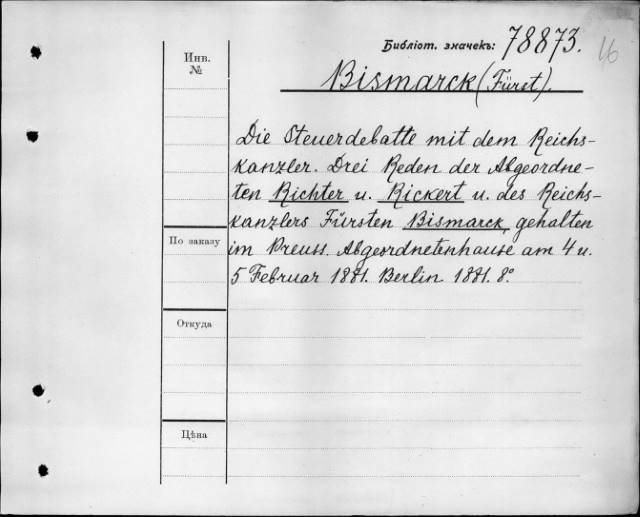 Библіот. значекъ: 78873.
Инв.
№
Bismarck (Fürst).
Die Steuerdebatte mit dem Reichs-
kanzler. Drei Reden der Abgeordne-
ten Richter u. Rickert u. des Reichs-
kanzlers Fürsten Bismarck, gehalten
im Preuss. Abgeordnetenhause am 4 u.
5 Februar 1881. Berlin 1881. 8°
По заказу
Откуда
Цѣна